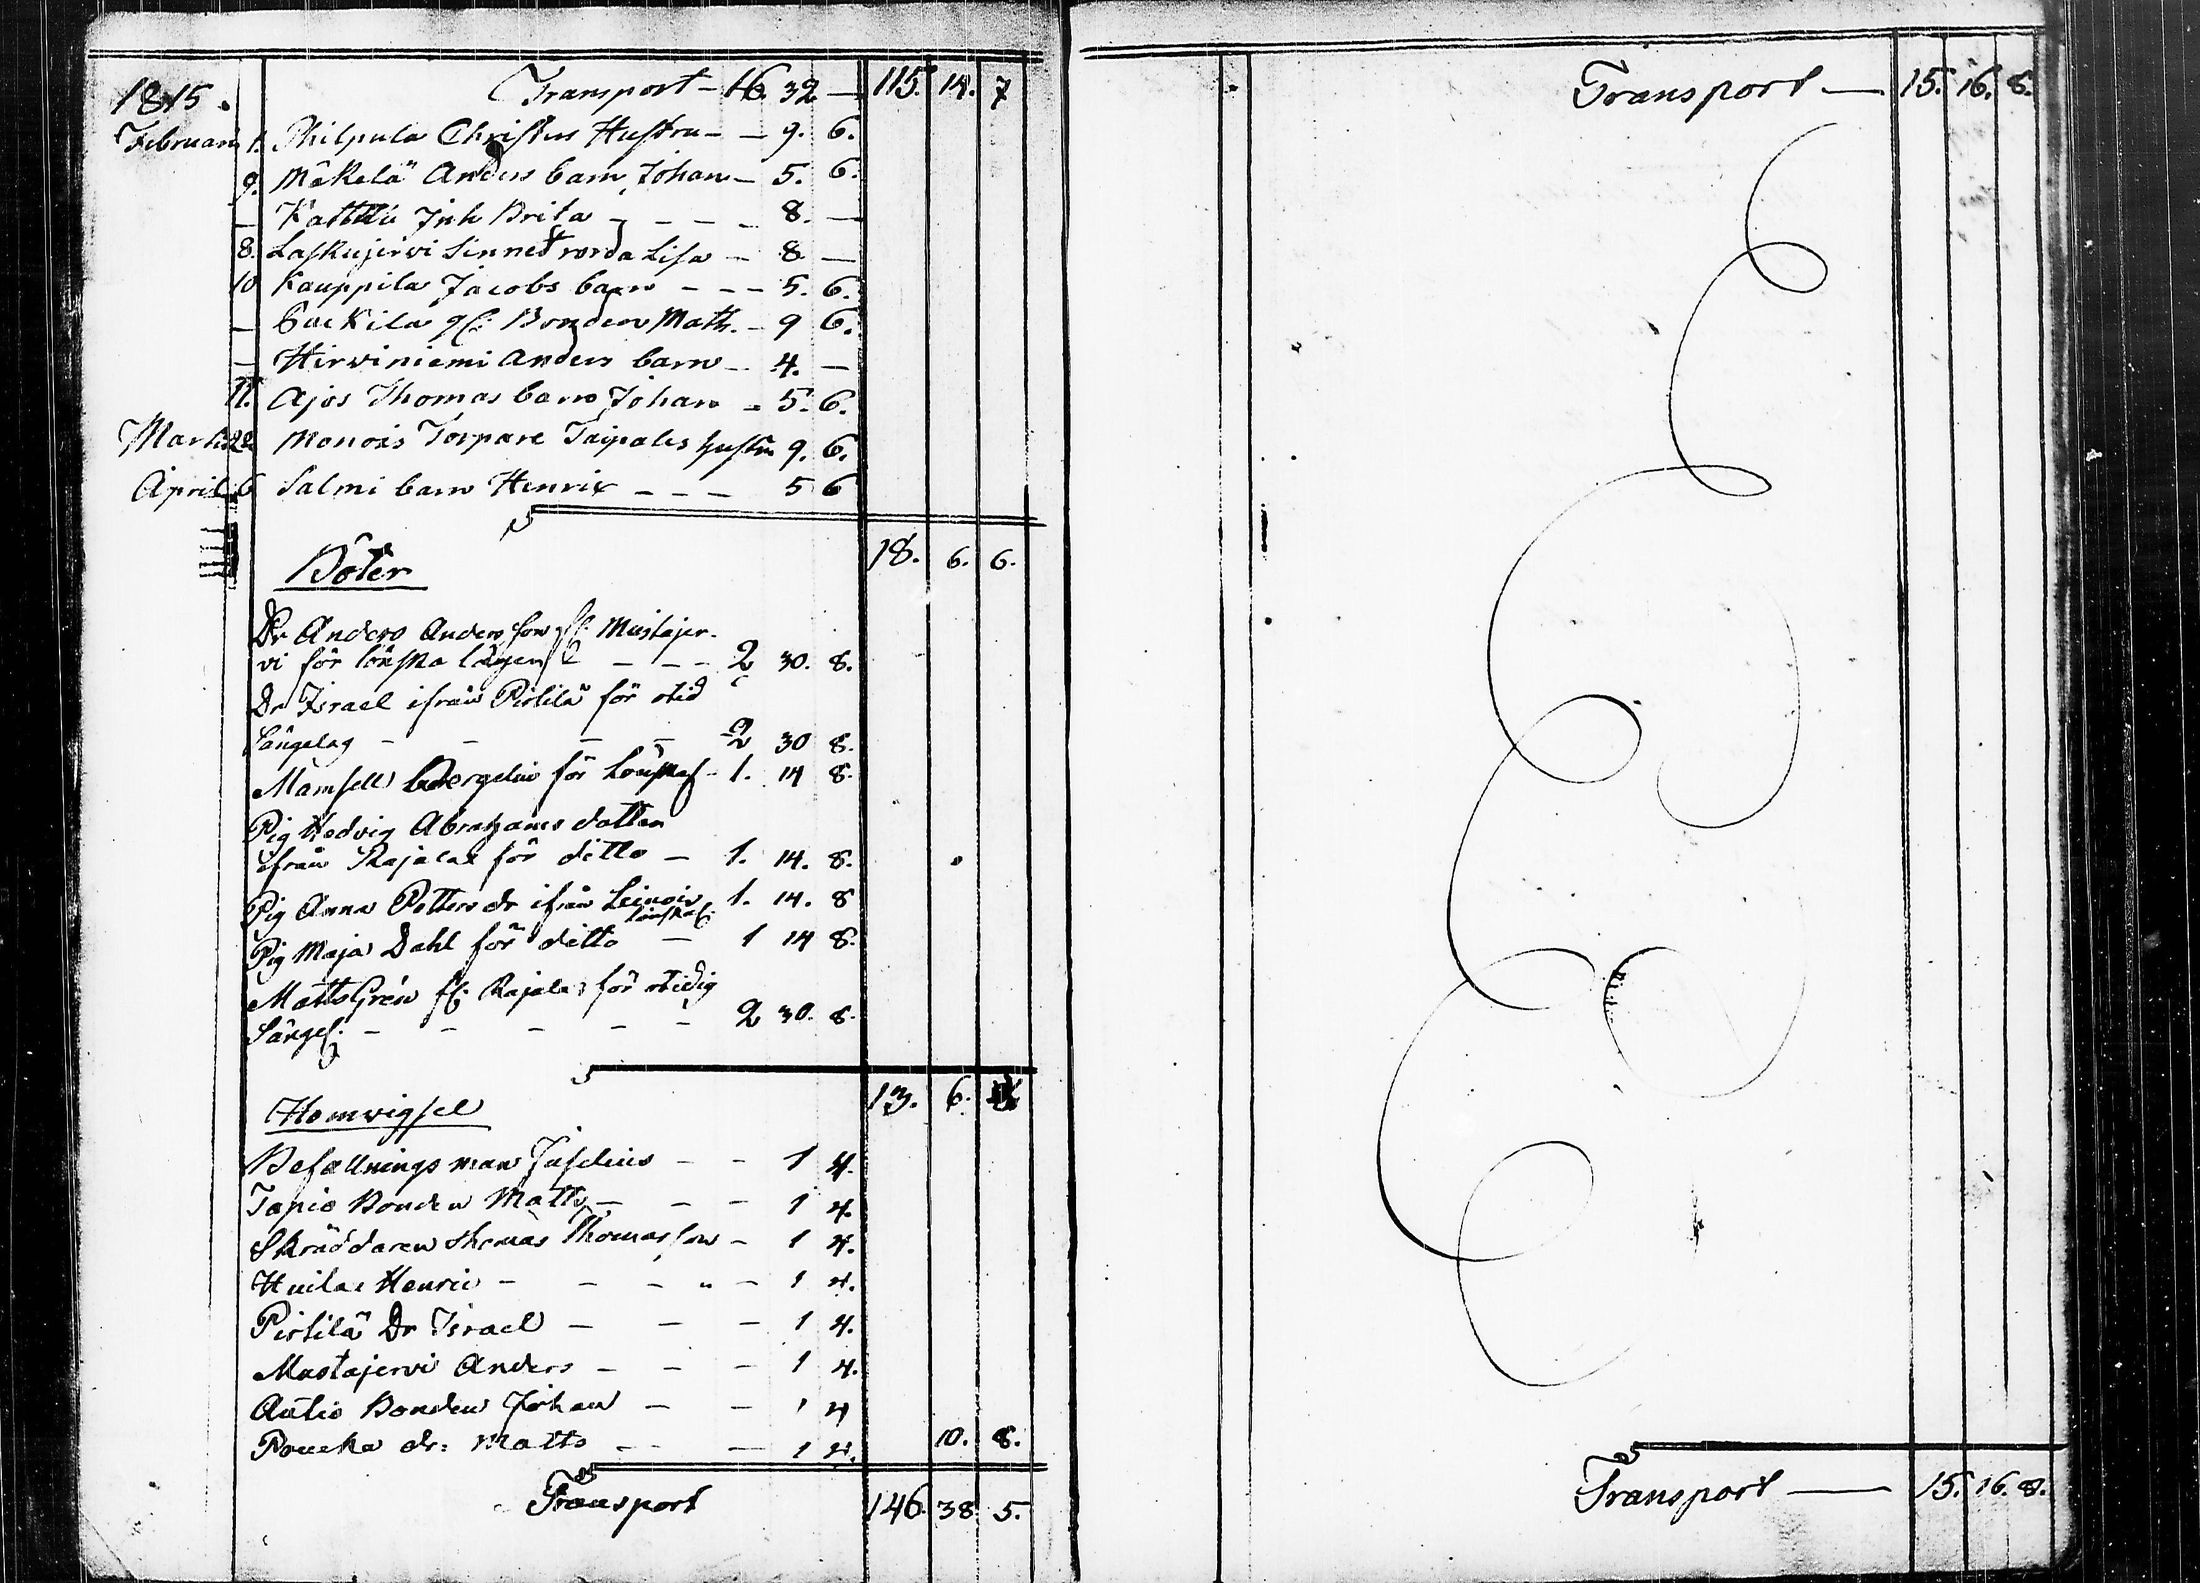 1815. Transport - 16. 32 — 115. 14. 7
Februari 1. Philpula Christers Hustru - - 9. 6.
9. Mäkelä Anders barn Johan - 5. 6.
— Inh Brita - - - - 8. —
8. Laskujervi Lisa - 8 —
10 Kauppila Jacobs barn - - - 5. 6.
— Bonden Math. - 9 6.
— Hirviniemi Anders barn - 4. —
11. Ajos Thomas barn Johan - 5. 6.
Martii 22 Monois Torpare Taipales Hustru 9. 6.
April 6 Salmi barn Henric - - - 5 6
18. 6. 6.
Böter
Dr Anders Andersson Mustajer-
vi för lönska lägen - - - 2 30. 8.
Dr Israel ifrån Pirtilä för otid
Sängelag - - - - 2 30 8.
Mamsell för Lönskal - 1. 14 8.
Pig Hedvig Abrahams dotter
ifrån Rajala för ditto - 1. 14. 8.
Pig Anna Petters dr ifrån Leinois 1. 14. 8
lönskal:
Pig Maja Dahl för ditto - 1 14 8.
Matts Grén Rajala för otidig
Sängel. - - - - - 2 30. 8.
13. 6.
Hemvigsel
Befallningsman - - 1 4.
Tapio Bonden Matts - - - 1 4.
Skräddaren Thomas Thomasson - 1 4.
Huila Henric - - - - - 1 4.
Pirtilä Dr Israel - - - 1 4.
Mustajervi Anders - - - 1 4.
Autio Bonden Johan - - 1 4
dr: Matts - - - 1 4. 10. 8.
Transport 146. 38 5.
Transport — 15. 16. 8.
Transport — 15. 16. 8.